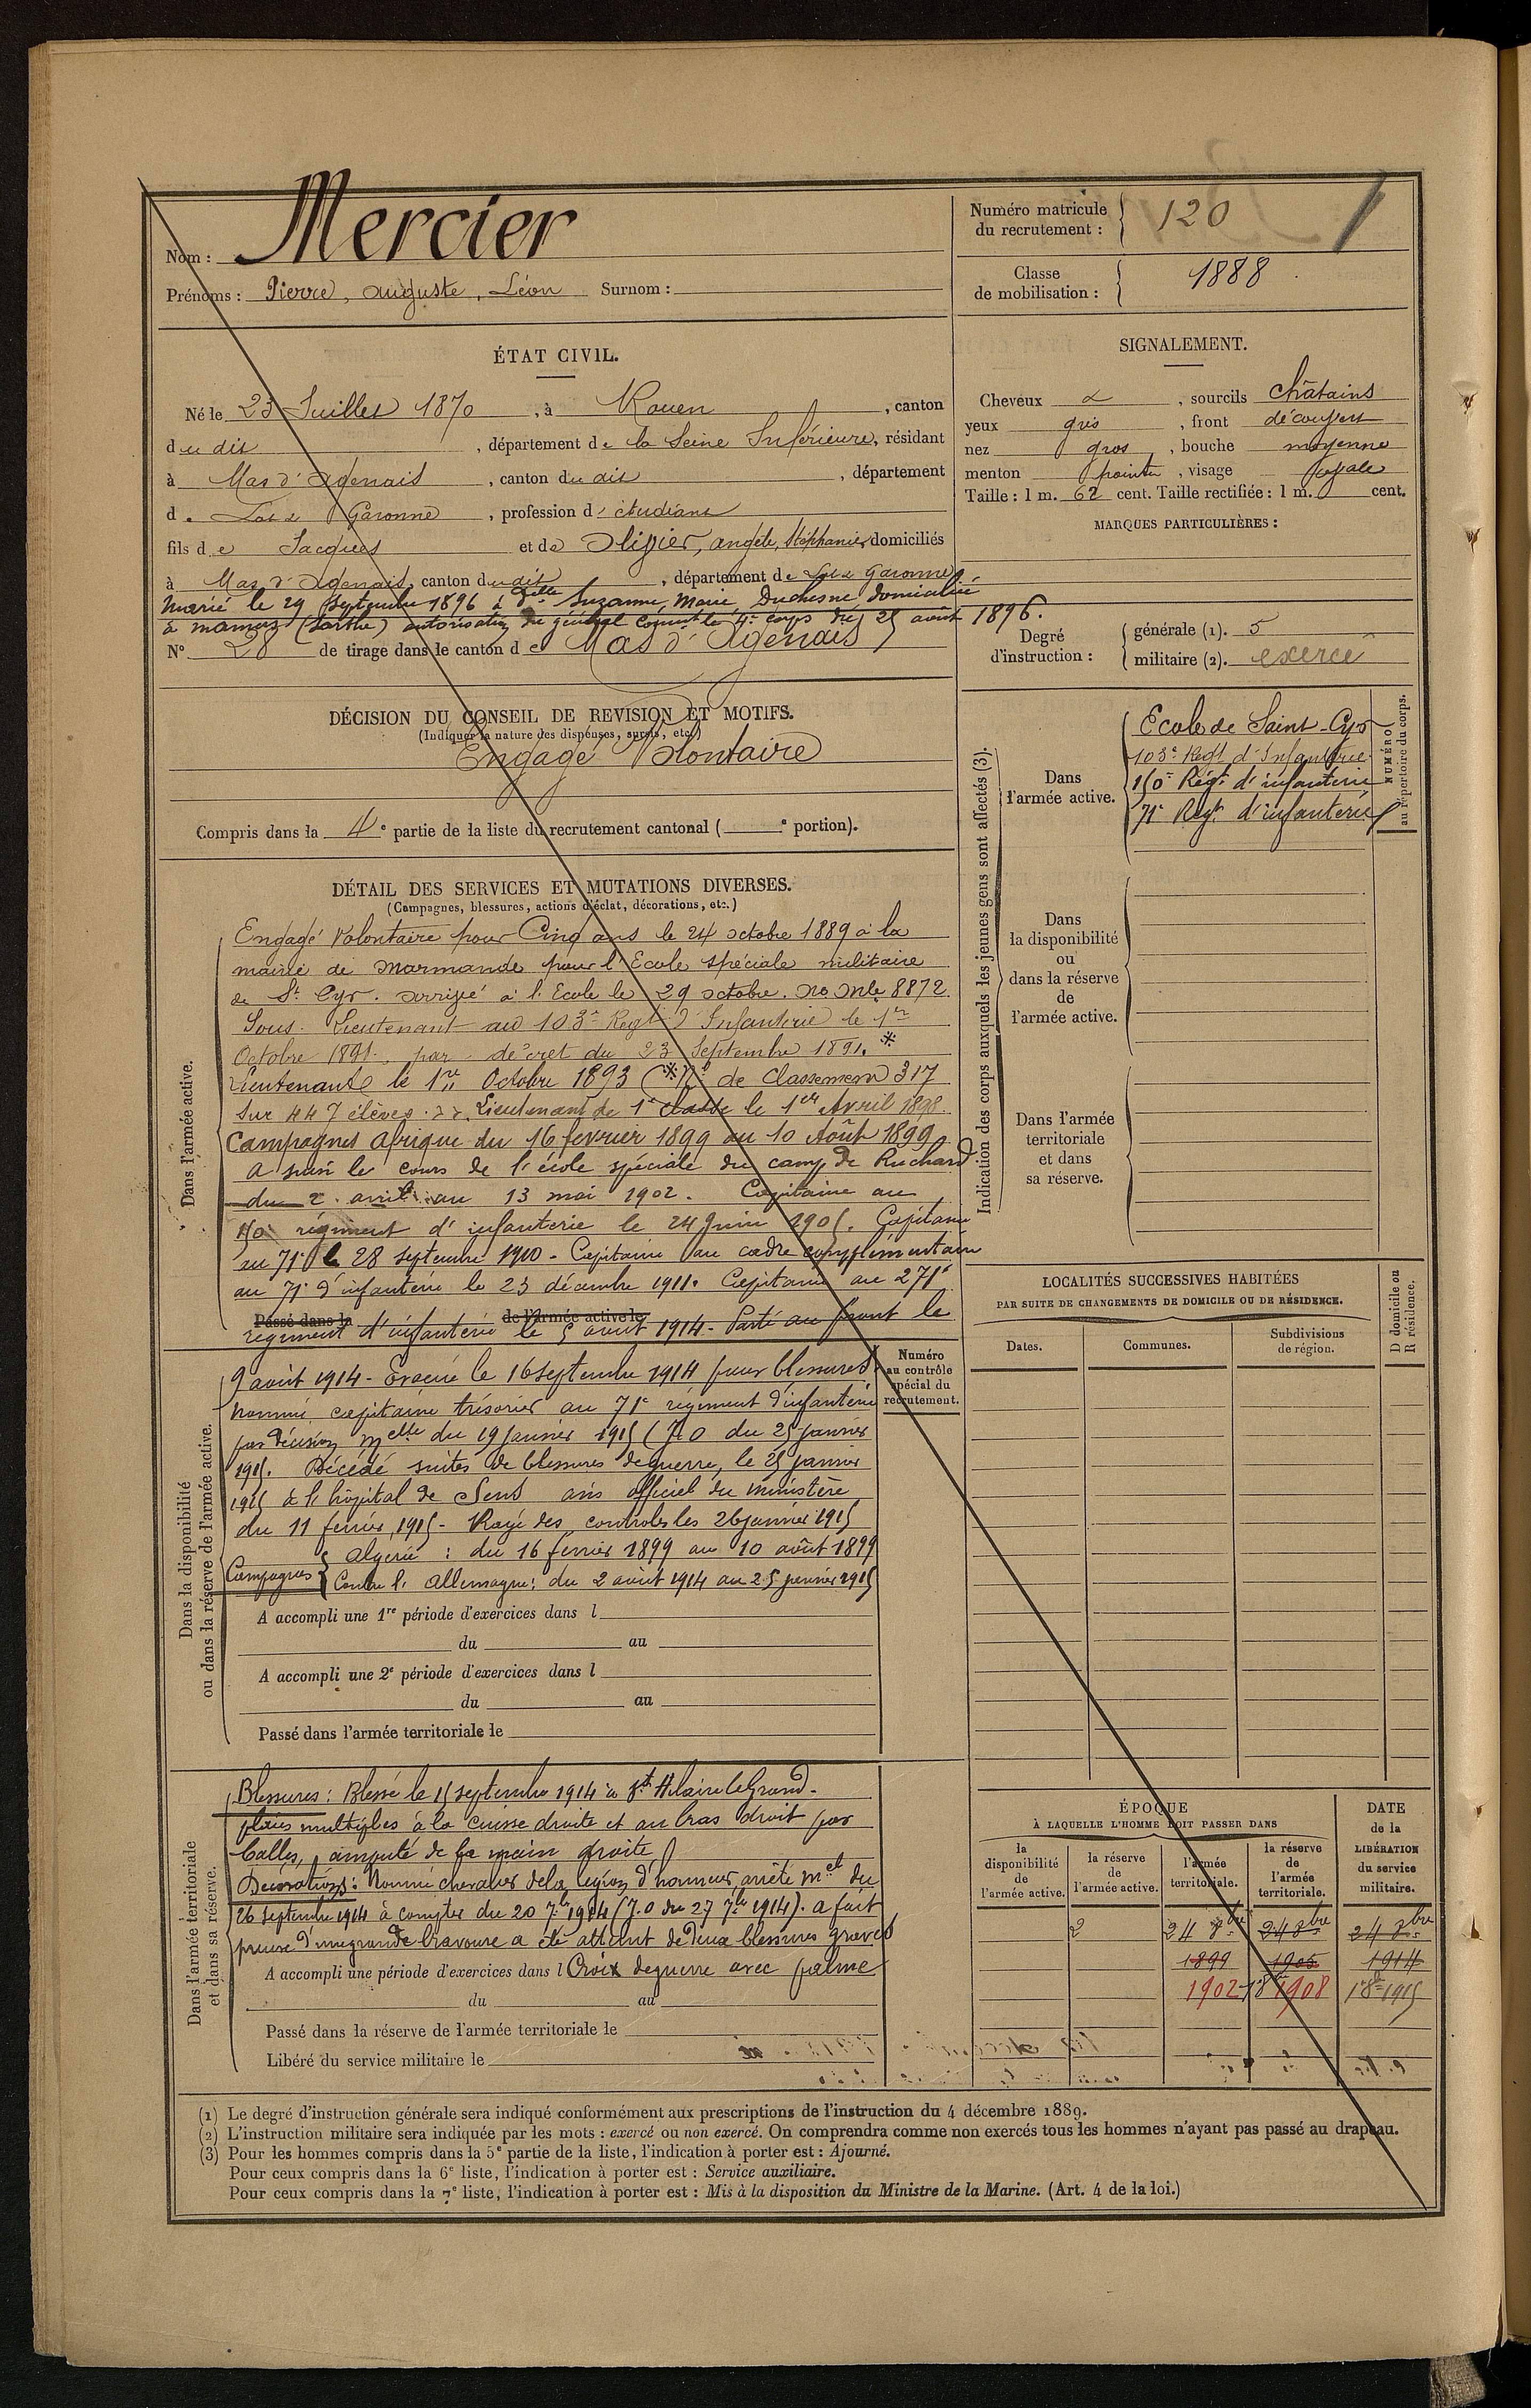 Nom : Mercier
Prénoms : Pierre, Auguste, Léon Surnom :
Numéro matricule du recrutement : 120
Classe de mobilisation : 1888
ÉTAT CIVIL.
Né le 23 Juillet 1870, à Rouen, canton
du dit, département de la Seine Inférieure, résidant
à Mas d'Agenais, canton du dit, département
de Lot et Garonne, profession d'étudiant
fils de Jacques et de Olivier, Angèle, Stéphanie, domiciliés
à Mas d'Agenais, canton du dit, département de Lot et Garonne
Marié le 29 Septembre 1896 à Dlle Suzanne, Marie, Duchesne domiciliée
à Mamers (Sarthe) autorisation du général Commt le 4e corps du 25 août 1896.
N° 28 de tirage dans le canton de Mas d'Agenais
SIGNALEMENT.
Cheveux et, sourcils châtains
yeux gris, front découvert
nez gros, bouche moyenne
menton pointu, visage ovale
Taille : 1 m. 62 cent. Taille rectifiée : 1 m. cent.
MARQUES PARTICULIÈRES :
Degré d'instruction : générale (1). 5
militaire (2). exercé
DÉCISION DU CONSEIL DE REVISION ET MOTIFS.
(Indiquer la nature des dispenses, sursis, etc.)
Engagé Volontaire
Compris dans la 4e partie de la liste du recrutement cantonal ( e portion).
DÉTAIL DES SERVICES ET MUTATIONS DIVERSES.
(Campagnes, blessures, actions d'éclat, décorations, etc.)
Dans l'armée active.
Engagé Volontaire pour Cinq ans le 24 octobre 1889 à la
mairie de Marmande pour l'Ecole spéciale militaire
de St Cyr. arrivé à l'Ecole le 29 octobre. No Mle 8872.
Sous-Lieutenant au 103e Regt d'Infanterie le 1er
Octobre 1891, par décret du 23 Septembre 1891. *
Lieutenant le 1er Octobre 1893 (* No de Classement 317
sur 447 élèves. Lieutenant de 1e classe le 1er Avril 1898.
Campagnes Afrique du 16 février 1899 au 10 Août 1899
A suivi les cours de l'école spéciale du camp de Ruchard
du 2 avril au 13 mai 1902. Capitaine au
150e régiment d'infanterie le 24 Juin 1905. Capitaine
au 71e le 28 septembre 1910 - Capitaine au cadre complémentaire
au 71e d'infanterie le 23 décembre 1911. Capitaine au 271e
Passé dans la de l'armée active le
régiment d'infanterie le 5 août 1914 - Parti au front le
Dans la disponibilité ou dans la réserve de l'armée active.
9 août 1914 - Evacué le 16 septembre 1914 pour blessures
Nommé capitaine trésorier au 71e régiment d'infanterie
par décision Melle du 19 janvier 1915 (J.O du 25 janvier
1915. Décédé suites de blessures de guerre, le 25 janvier
1915 à l'hôpital de Sens avis officiel du ministère
du 11 février 1915 - Rayé des contrôles les 26 janvier 1915
Campagnes { Algérie : du 16 février 1899 au 10 août 1899
Contre l'Allemagne : du 2 août 1914 au 25 janvier 1915
Numéro au contrôle spécial du recrutement.
A accompli une 1re période d'exercices dans l
du au
A accompli une 2e période d'exercices dans l
du au
Passé dans l'armée territoriale le
Dans l'armée territoriale et dans sa réserve.
Blessures : Blessé le 15 septembre 1914 à St Hilaire le Grand -
plaies multiples à la cuisse droite et au bras droit par
balles, amputé de la main droite
Décorations : Nommé chevalier de la légion d'honneur, arrêté Mel du
26 septembre 1914 à compter du 20 7bre 1914 (J.O du 27 7bre 1914). a fait
preuve d'une grande bravoure a été atteint de deux blessures graves
A accompli une période d'exercices dans l Croix de guerre avec palme
du au
Passé dans la réserve de l'armée territoriale le
Libéré du service militaire le
Indication des corps auxquels les jeunes gens sont affectés (3).
NUMÉRO au répertoire du corps.
Dans l'armée active.
Ecole de Saint-Cyr
103e Regt d'Infanterie
150e Régt d'infanterie
71e Régt d'infanterie
Dans la disponibilité ou dans la réserve de l'armée active.
Dans l'armée territoriale et dans sa réserve.
LOCALITÉS SUCCESSIVES HABITÉES
PAR SUITE DE CHANGEMENTS DE DOMICILE OU DE RÉSIDENCE.
Dates. Communes. Subdivisions de région. D domicile ou R résidence.
ÉPOQUE
À LAQUELLE L'HOMME DOIT PASSER DANS
la disponibilité de l'armée active.
la réserve de l'armée active.
l'armée territoriale.
la réserve de l'armée territoriale.
DATE de la LIBÉRATION du service militaire.
24 8bre 24 8bre
1899 1905 1914
1902 1908 1915
(1) Le degré d'instruction générale sera indiqué conformément aux prescriptions de l'instruction du 4 décembre 1889.
(2) L'instruction militaire sera indiquée par les mots : exercé ou non exercé. On comprendra comme non exercés tous les hommes n'ayant pas passé au drapeau.
(3) Pour les hommes compris dans la 5e partie de la liste, l'indication à porter est : Ajourné.
Pour ceux compris dans la 6e liste, l'indication à porter est : Service auxiliaire.
Pour ceux compris dans la 7e liste, l'indication à porter est : Mis à la disposition du Ministre de la Marine. (Art. 4 de la loi.)